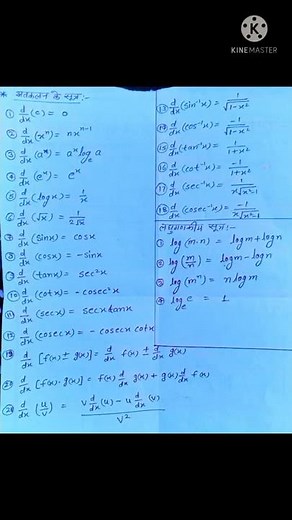 KINEMASTER
* अवकलन के सूत्र :-
① d/dx (c) = 0
② d/dx (xⁿ) = nxⁿ⁻¹
③ d/dx (aˣ) = aˣ logₑ a
④ d/dx (eˣ) = eˣ
⑤ d/dx (log x) = 1/x
⑥ d/dx (√x) = 1/2√x
⑦ d/dx (sinx) = cosx
⑧ d/dx (cosx) = -sinx
⑨ d/dx (tanx) = sec²x
⑩ d/dx (cotx) = -cosec²x
⑪ d/dx (secx) = secx tanx
⑫ d/dx (cosecx) = - cosecx cotx
⑬ d/dx (sin⁻¹x) = 1/√1-x²
⑭ d/dx (cos⁻¹x) = -1/√1-x²
⑮ d/dx (tan⁻¹x) = 1/1+x²
⑯ d/dx (cot⁻¹x) = -1/1+x²
⑰ d/dx (sec⁻¹x) = 1/x√x²-1
⑱ d/dx (cosec⁻¹x) = -1/x√x²-1
लघुगणकीय सूत्र :-
① log (m.n) = logm + logn
② log (m/n) = logm - logn
③ log (mⁿ) = n logm
④ logₑ e = 1
⑲ d/dx [f(x) ± g(x)] = d/dx f(x) ± d/dx g(x)
⑳ d/dx [f(x) . g(x)] = f(x) d/dx g(x) + g(x) d/dx f(x)
㉑ d/dx (u/v) = v d/dx (u) - u d/dx (v) / v²